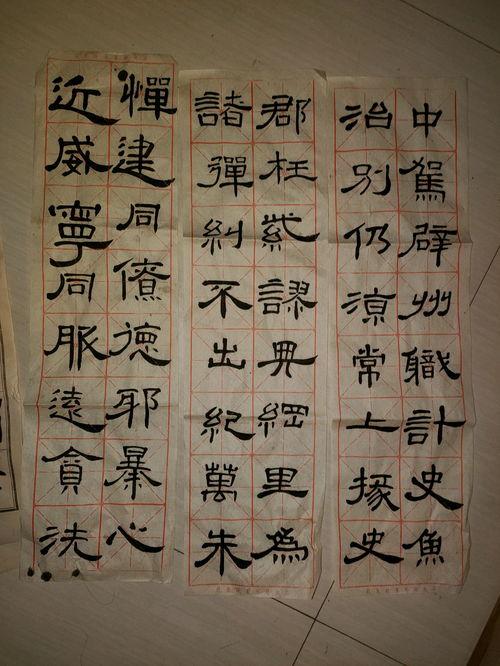 中駕辟州職計史魚
治別仍涼常上掾史
郡枉紫謬典綱里為
諸彈糾不出紀萬朱
憚建同僚德耶暴心
近威寧同服遠貪洗